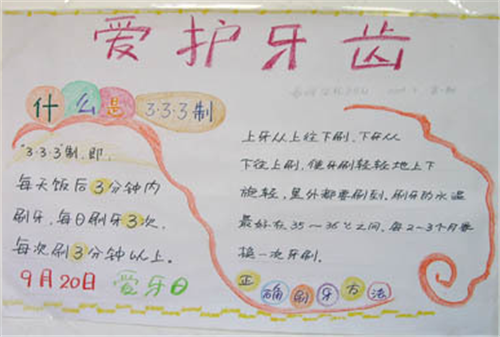 爱护牙齿
什么是3·3·3制
"3·3·3"制,即:
每天饭后3分钟内
刷牙,每日刷牙3次,
每次刷3分钟以上。
9月20日 爱牙日
上牙从上往下刷,下牙从
下往上刷,使牙刷轻轻地上下
旋轻,里外都要刷到,刷牙的水温
最好在35~36℃之间,每2~3个月要
换一次牙刷。
正确刷牙方法